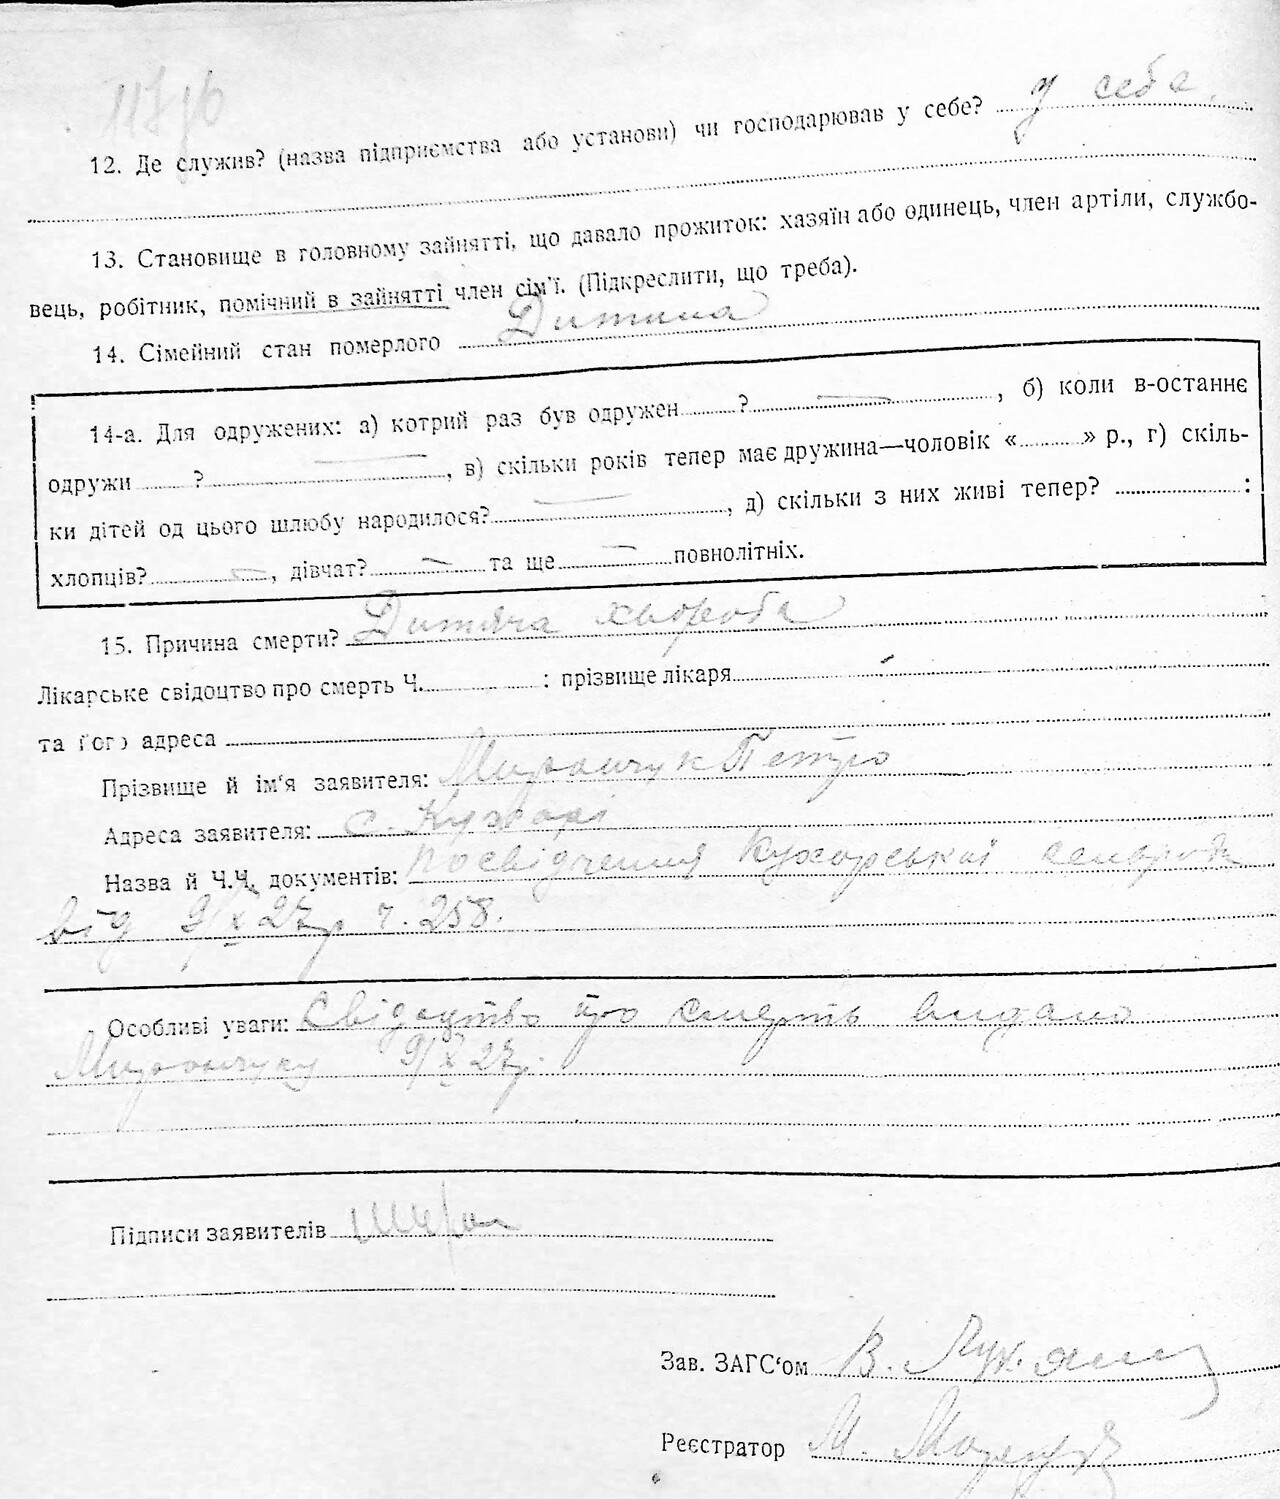 12. Де служив? (назва підприємства або установи) чи господарював у себе? у себе.
13. Становище в головному зайнятті, що давало прожиток: хазяїн або одинець, член артіли, службо-
вець, робітник, помічний в зайнятті член сім'ї. (Підкреслити, що треба).
14. Сімейний стан померлого Дитина
14-а. Для одружених: а) котрий раз був одружен ? —, б) коли в-останнє
одружи ? —, в) скільки років тепер має дружина—чоловік « » р., г) скіль-
ки дітей од цього шлюбу народилося? —, д) скільки з них живі тепер? :
хлопців? —, дівчат? — та ще — повнолітніх.
15. Причина смерти? Дитяча хвороба
Лікарське свідоцтво про смерть Ч. : прізвище лікаря
та його адреса
Прізвище й ім'я заявителя: Мирончук Петро
Адреса заявителя: с. Кухарі
Назва й Ч.Ч. документів: Посвідчення Кухарської сельради
від 9/X 27р ч. 258.
Особливі уваги: Свідоцтво про смерть видано
Мирончуку 9/X 27р.
Підписи заявителів
Зав. ЗАГС'ом В.
Реєстратор М.